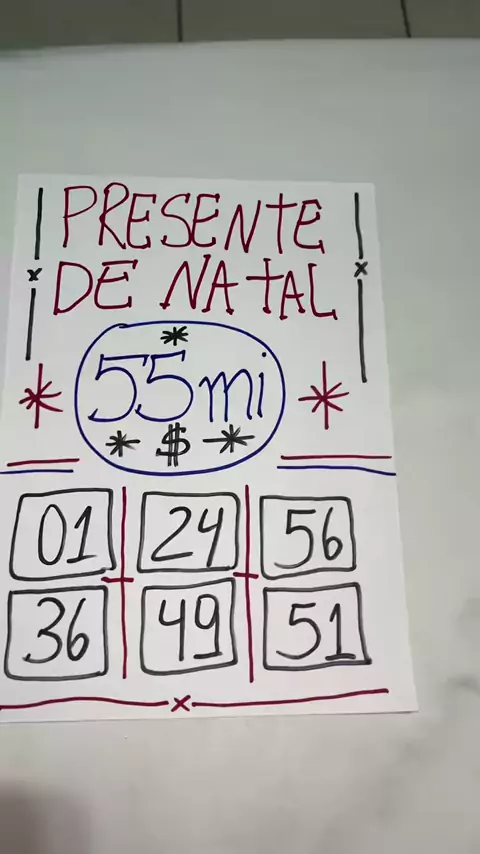 PRESENTE
DE NATAL
55mi
$
01 24 56
36 49 51